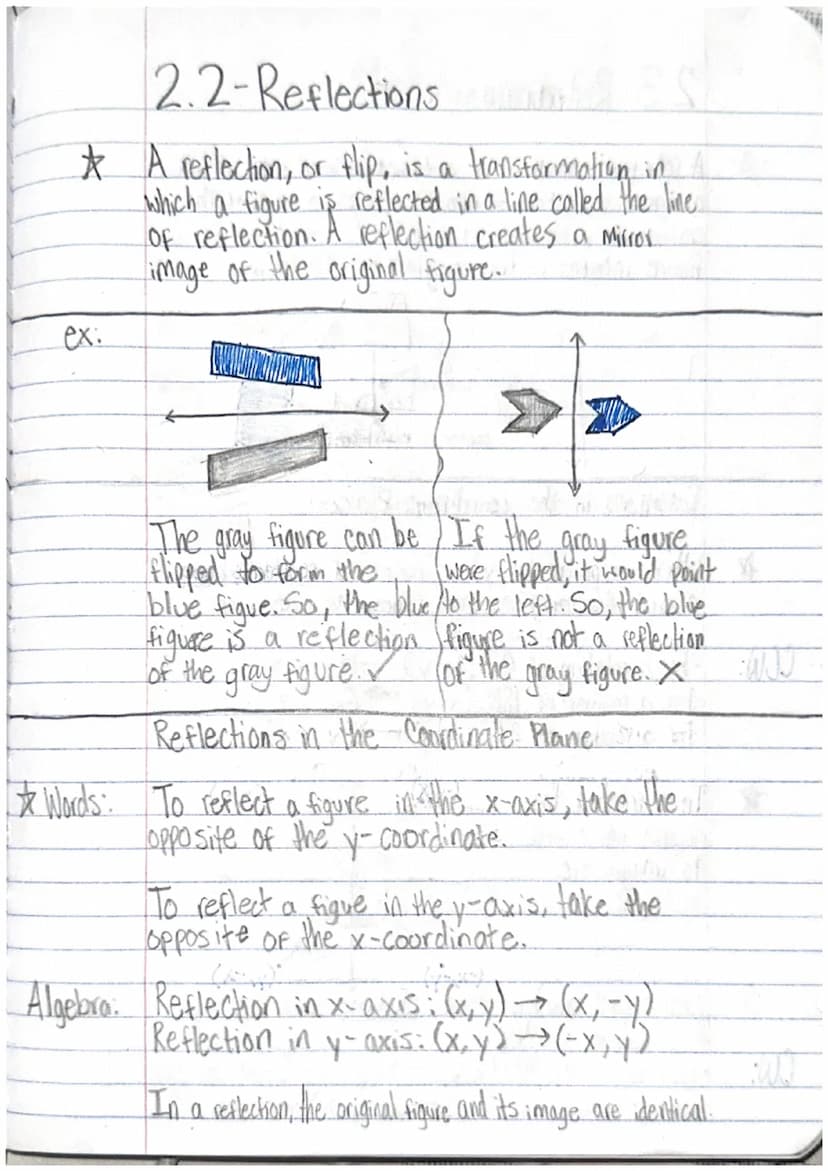 2.2-Reflections
☆ A reflection, or flip, is a transformation in
which a figure is reflected in a line called the line
of reflection. A reflection creates a mirror
image of the original figure.
ex:
The gray figure can be
flipped to form the
blue figue. So, the blue
figure is a reflection
of the gray figure. ✓
If the gray figure
were flipped, it would point
to the left. So, the blue
figure is not a reflection
of the gray figure. X
Reflections in the Coordinate Plane
☆ Words: To reflect a figure in the x-axis, take the
opposite of the y-coordinate.
To reflect a figue in the y-axis, take the
opposite of the x-coordinate.
Algebra: Reflection in x-axis: (x,y) → (x, -y)
Reflection in y-axis: (x,y) → (-x, y)
In a reflection, the original figure and its image are identical.